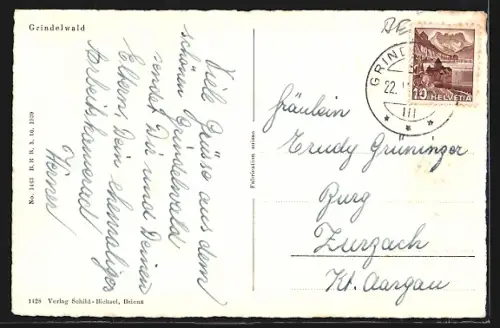 Grindelwald
Viele Grüsse aus dem
schönen Grindelwald
sendet Dir und Deinen
Eltern, Dein ehemaliger
Arbeitskamerad
Werner
No. 1443 B R B 3. 10. 1939
1428 Verlag Schild-Bichsel, Brienz
Fabrication suisse
GRINDEL
22.
III
10 HELVETIA
Fräulein
Trudy Grüninger
Burg
Zurzach
Kt. Aargau